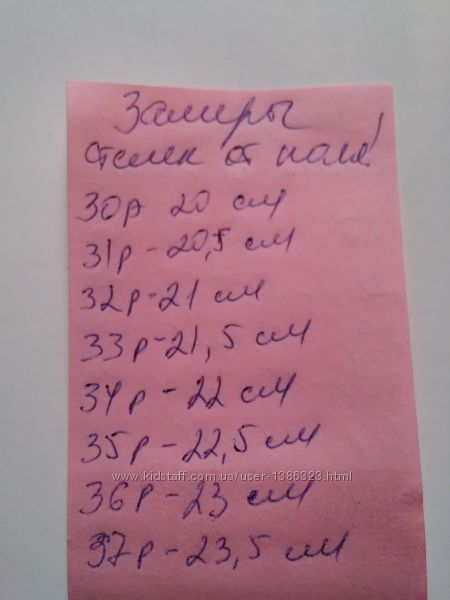 Замеры
стелек от поля!
30р 20 см
31р-20,5 см
32р-21 см
33р-21,5 см
34р-22 см
35р-22,5 см
www.kidstaff.com.ua/user-1386323.html
36р-23 см
37р-23,5 см